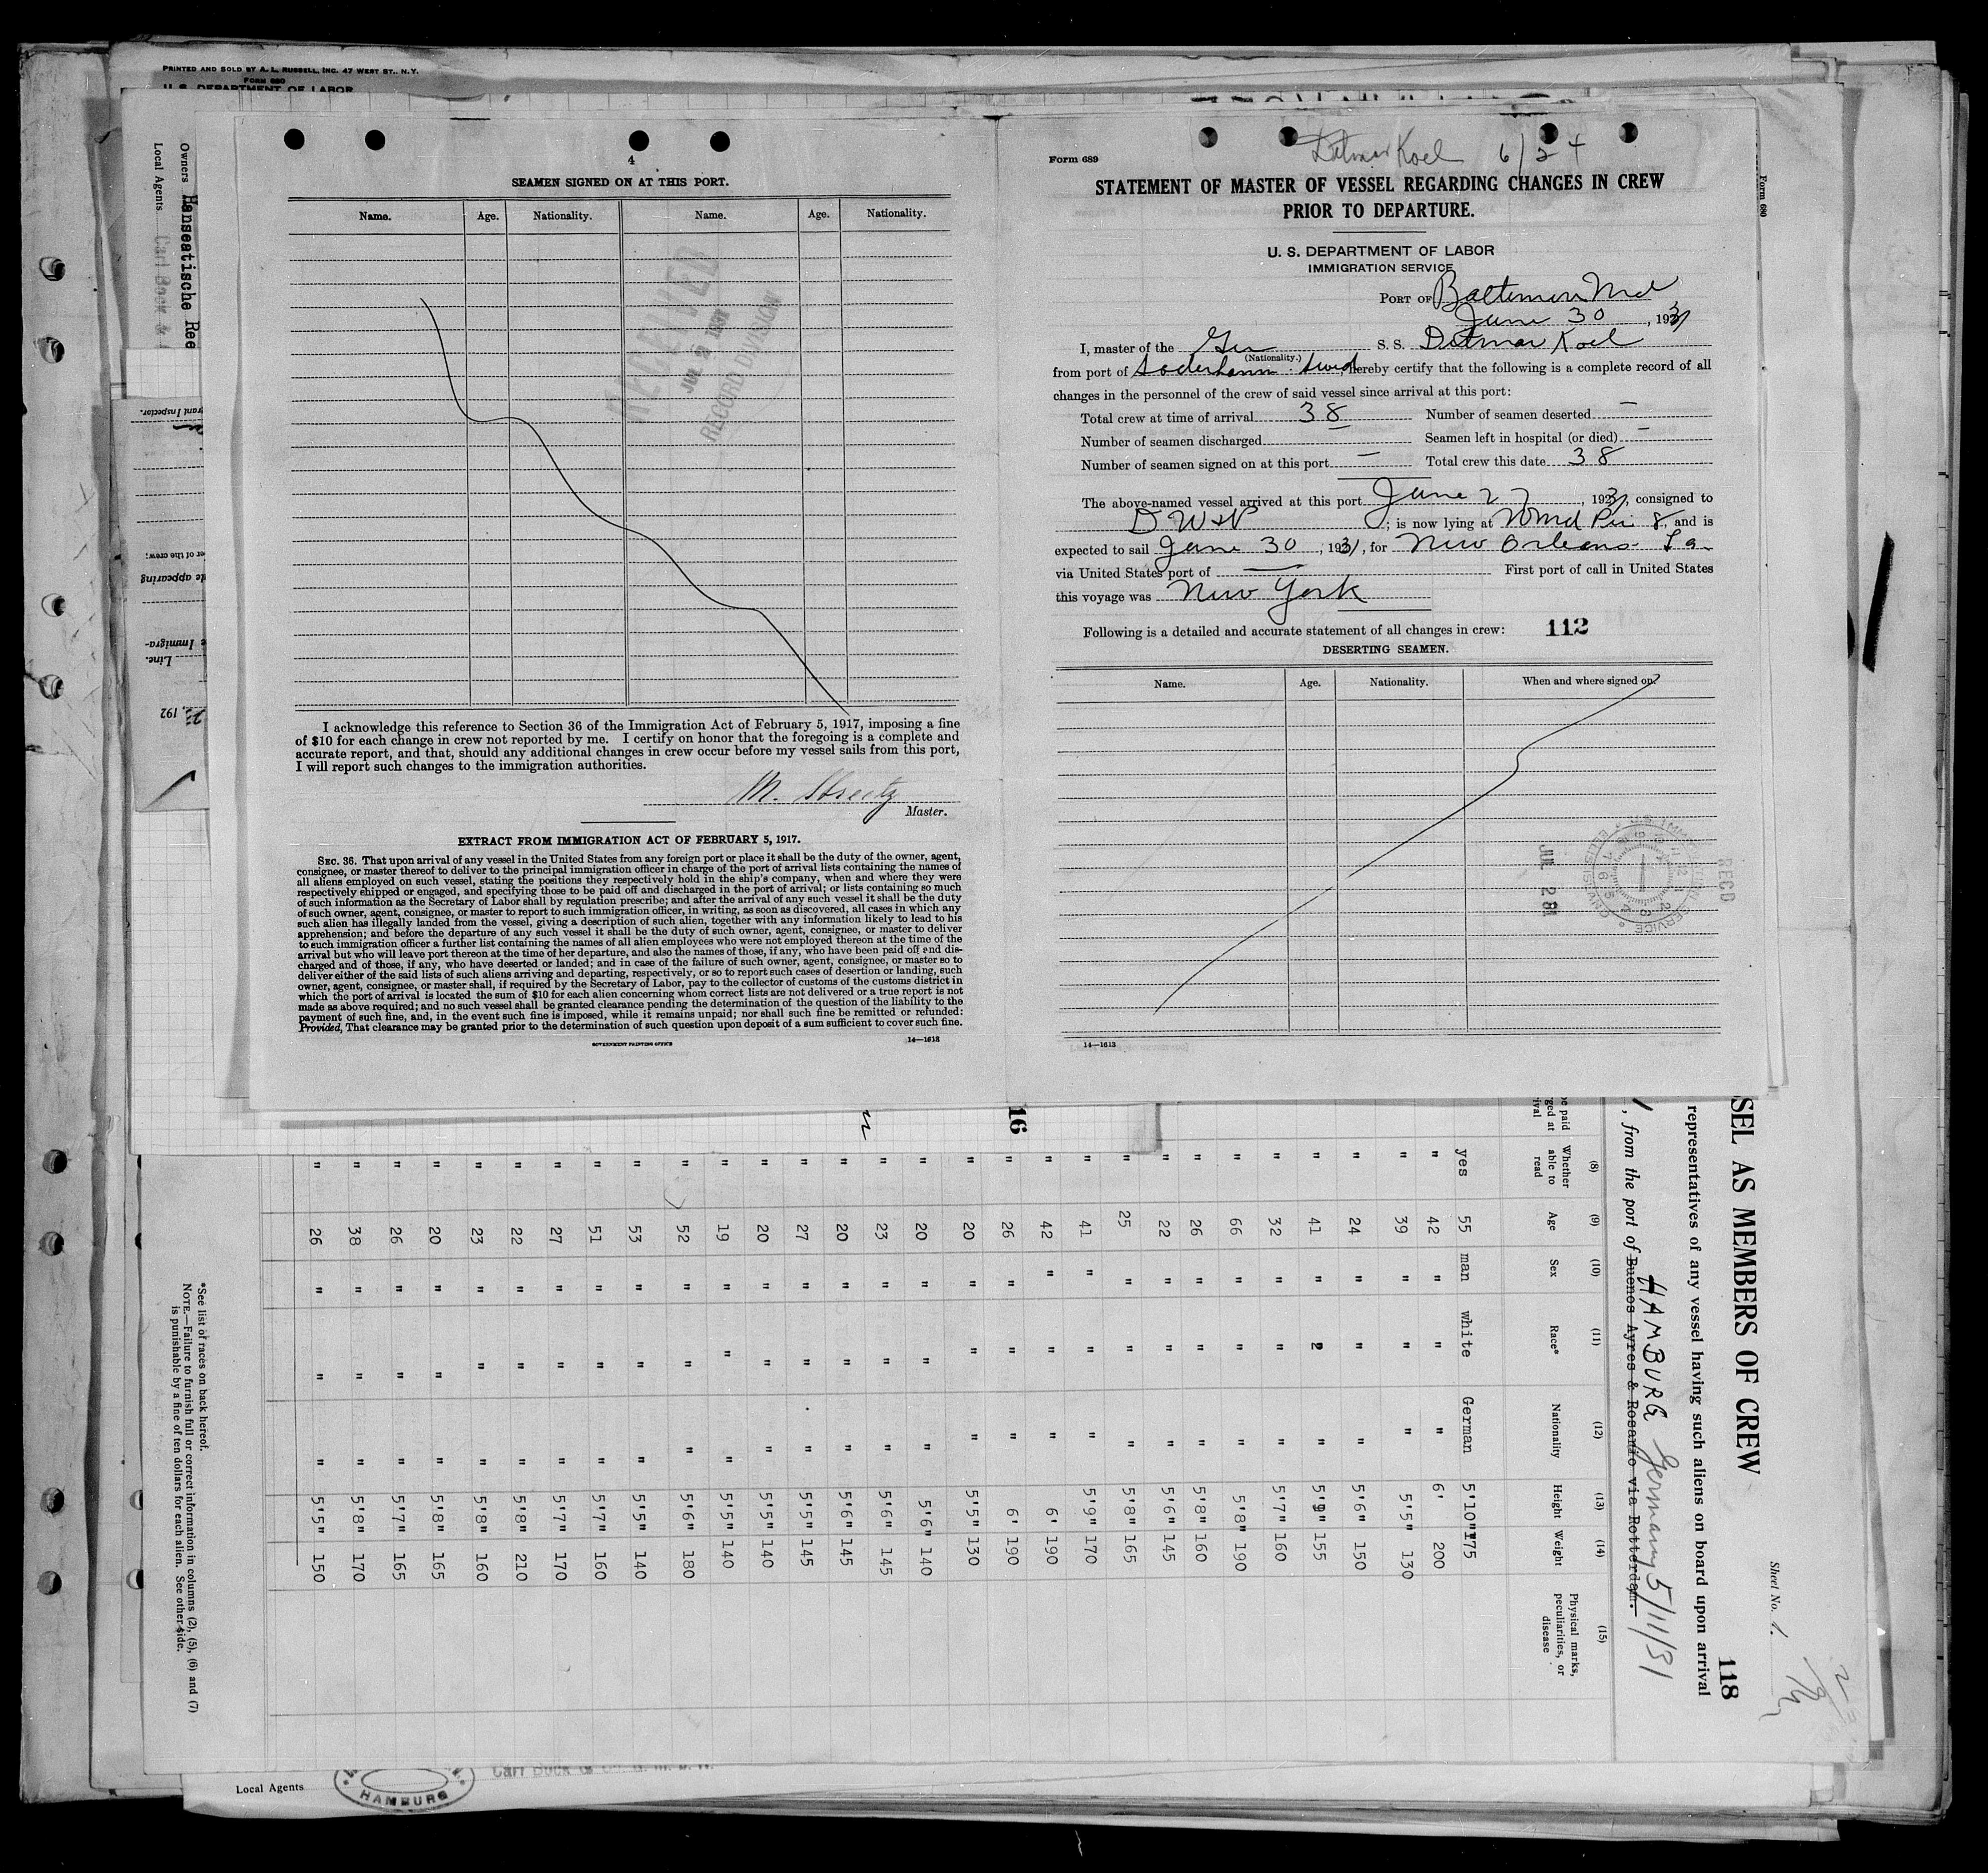 PRINTED AND SOLD BY A. L. RUSSELL, INC. 47 WEST ST., N.Y.
FORM 680
U. S. DEPARTMENT OF LABOR
Owners Hanseatische Ree
Local Agents Carl Bock &
4
SEAMEN SIGNED ON AT THIS PORT.
Name. Age. Nationality. Name. Age. Nationality.
RECEIVED
JUL 2 1931
RECORD DIVISION
I acknowledge this reference to Section 36 of the Immigration Act of February 5, 1917, imposing a fine
of $10 for each change in crew not reported by me. I certify on honor that the foregoing is a complete and
accurate report, and that, should any additional changes in crew occur before my vessel sails from this port,
I will report such changes to the immigration authorities.
M. Streitz
Master.
EXTRACT FROM IMMIGRATION ACT OF FEBRUARY 5, 1917.
SEC. 36. That upon arrival of any vessel in the United States from any foreign port or place it shall be the duty of the owner, agent,
consignee, or master thereof to deliver to the principal immigration officer in charge of the port of arrival lists containing the names of
all aliens employed on such vessel, stating the positions they respectively hold in the ship's company, when and where they were
respectively shipped or engaged, and specifying those to be paid off and discharged in the port of arrival; or lists containing so much
of such information as the Secretary of Labor shall by regulation prescribe; and after the arrival of any such vessel it shall be the duty
of such owner, agent, consignee, or master to report to such immigration officer, in writing, as soon as discovered, all cases in which any
such alien has illegally landed from the vessel, giving a description of such alien, together with any information likely to lead to his
apprehension; and before the departure of any such vessel it shall be the duty of such owner, agent, consignee, or master to deliver
to such immigration officer a further list containing the names of all alien employees who were not employed thereon at the time of the
arrival but who will leave port thereon at the time of her departure, and also the names of those, if any, who have been paid off and dis-
charged and of those, if any, who have deserted or landed; and in case of the failure of such owner, agent, consignee, or master so to
deliver either of the said lists of such aliens arriving and departing, respectively, or so to report such cases of desertion or landing, such
owner, agent, consignee, or master shall, if required by the Secretary of Labor, pay to the collector of customs of the customs district in
which the port of arrival is located the sum of $10 for each alien concerning whom correct lists are not delivered or a true report is not
made as above required; and no such vessel shall be granted clearance pending the determination of the question of the liability to the
payment of such fine, and, in the event such fine is imposed, while it remains unpaid; nor shall such fine be remitted or refunded:
Provided, That clearance may be granted prior to the determination of such question upon deposit of a sum sufficient to cover such fine.
GOVERNMENT PRINTING OFFICE
14—1613
Form 689
Ditmar Koel 6/24
STATEMENT OF MASTER OF VESSEL REGARDING CHANGES IN CREW
PRIOR TO DEPARTURE.
U. S. DEPARTMENT OF LABOR
IMMIGRATION SERVICE
PORT OF Baltimore Md
June 30, 1931
I, master of the Ger S. S. Ditmar Koel
(Nationality.)
from port of Soderhamn Swed, hereby certify that the following is a complete record of all
changes in the personnel of the crew of said vessel since arrival at this port:
Total crew at time of arrival 38 Number of seamen deserted —
Number of seamen discharged Seamen left in hospital (or died) —
Number of seamen signed on at this port — Total crew this date 38
The above-named vessel arrived at this port June 27, 1931, consigned to
; is now lying at WMd Pier 8, and is
expected to sail June 30, 1931, for New Orleans La
via United States port of — First port of call in United States
this voyage was New York
Following is a detailed and accurate statement of all changes in crew: 112
DESERTING SEAMEN.
Name. Age. Nationality. When and where signed on.
JUL 2 31
RECD
14—1613
Form 680
rant Inspector.
er of the crew;
ate appearing
e Immigra-
Line.
, 192
16
SSEL AS MEMBERS OF CREW
118
Sheet No. 1.
representatives of any vessel having such aliens on board upon arrival
, from the port of Buenos Ayres & Rosario via Rotterdam.
HAMBURG Germany 5/11/31
(8) (9) (10) (11) (12) (13) (14) (15)
Whether able to read Age Sex Race* Nationality Height Weight Physical marks, peculiarities, or disease
yes 55 man white German 5'10" 175
" 42 " " " 6' 200
" 39 " " " 5'5" 130
" 24 " " " 5'6" 150
" 41 " " " 5'9" 155
" 32 " " " 5'7" 160
" 66 " " " 5'8" 190
" 26 " " " 5'8" 160
" 22 " " " 5'6" 145
" 25 " " " 5'8" 165
" 41 " " " 5'9" 170
" 42 " " " 6' 190
" 26 " " " 6' 190
" 20 " " " 5'5" 130
" 20 " " " 5'6" 140
" 23 " " " 5'6" 145
" 20 " " " 5'6" 145
" 27 " " " 5'5" 145
" 20 " " " 5'5" 140
" 19 " " " 5'5" 140
" 52 " " " 5'6" 180
" 53 " " " 5'5" 140
" 51 " " " 5'7" 160
" 27 " " " 5'7" 170
" 22 " " " 5'8" 210
" 23 " " " 5'8" 160
" 20 " " " 5'8" 165
" 26 " " " 5'7" 165
" 38 " " " 5'8" 170
" 26 " " " 5'5" 150
*See list of races on back hereof.
NOTE.—Failure to furnish full or correct information in columns (2), (5), (6) and (7)
is punishable by a fine of ten dollars for each alien. See other side.
Local Agents
HAMBURG